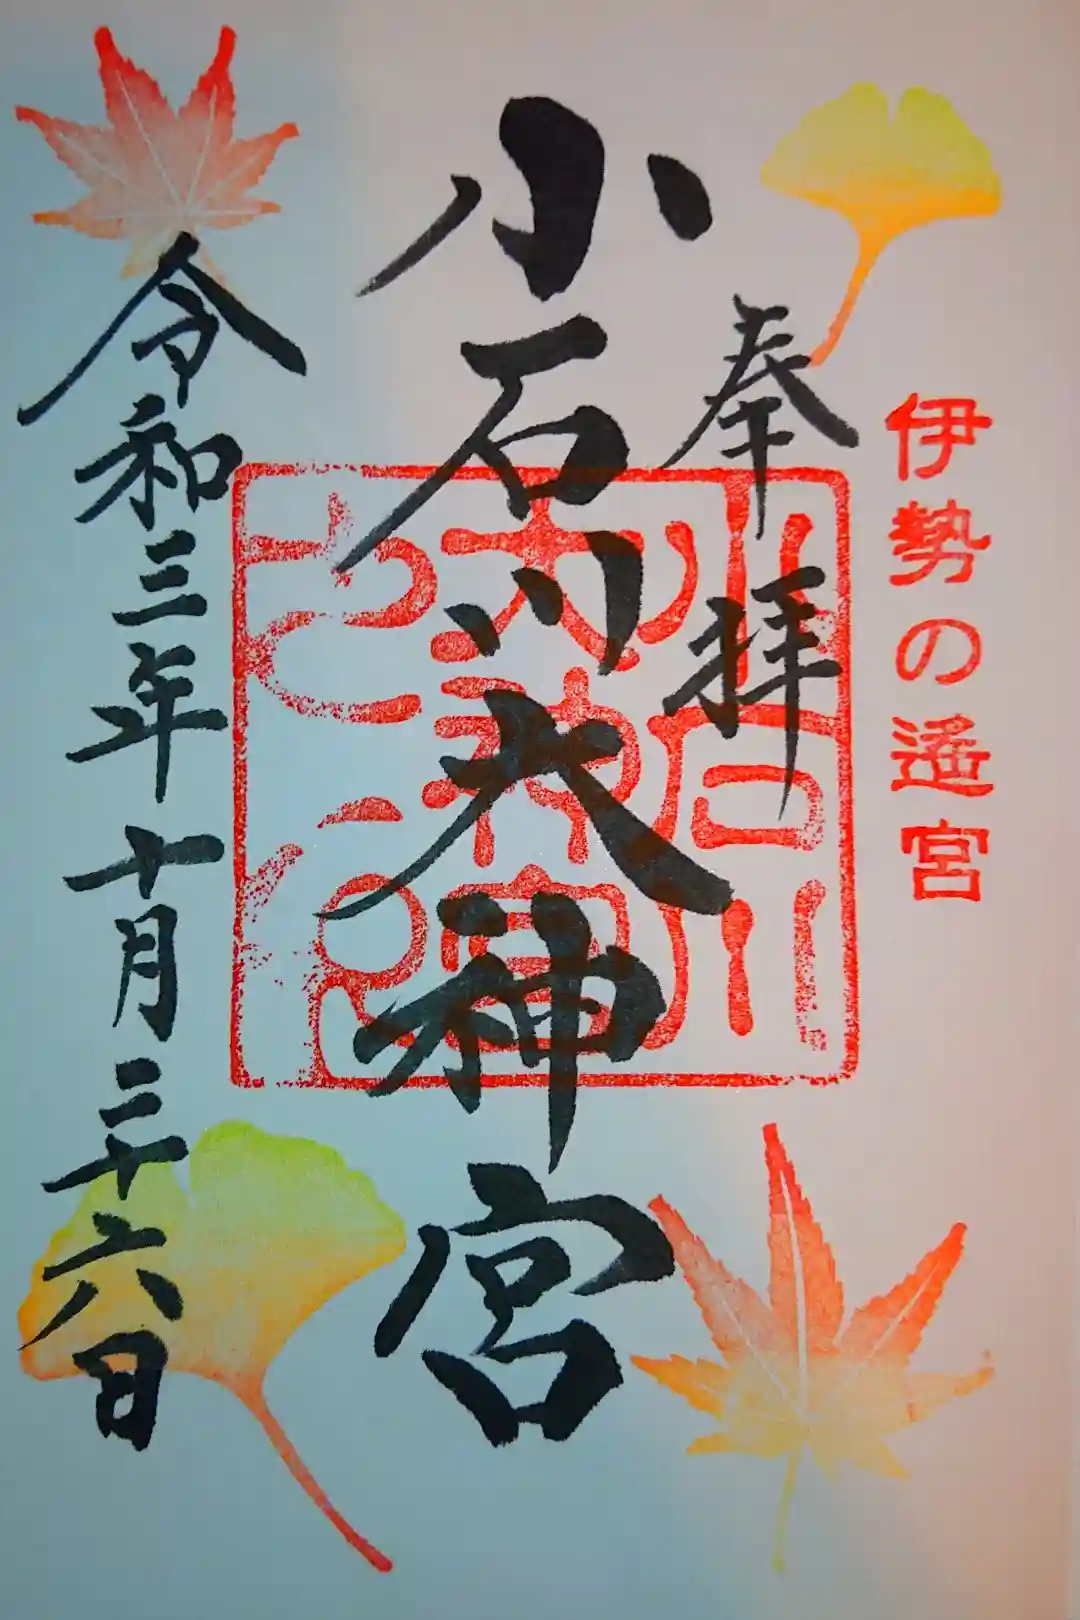 伊勢の遙宮
奉拝
小石川大神宮
小石川
大神宮
令和三年十月二十六日